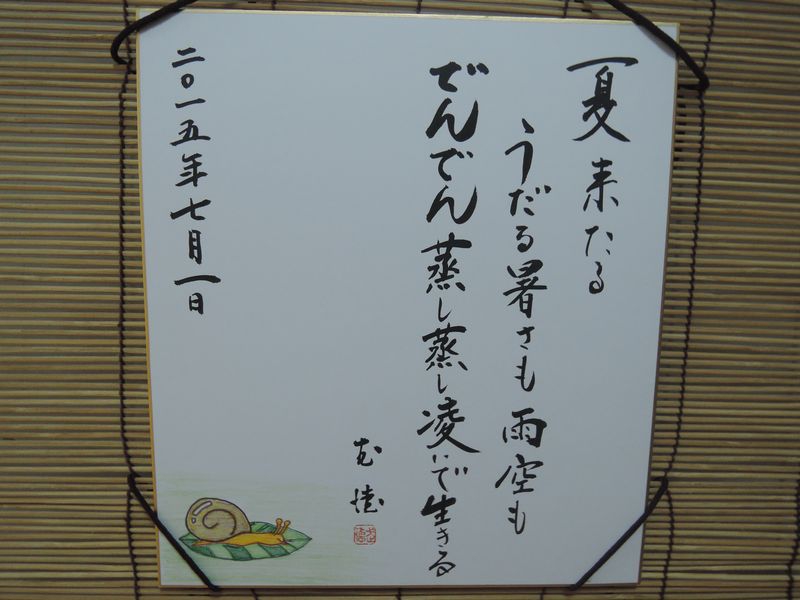 夏来たる
うだる暑さも雨空も
でんでん蒸し蒸し凌いで生きる
二〇一五年七月一日